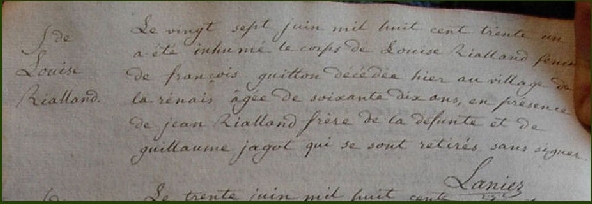 S. de
Louise
Rialland.
Le vingt sept juin mil huit cent trente un
a été inhumé le corps de Louise Rialland femme
de françois guitton décédée hier au village de
la rénais âgée de soixante dix ans, en présence
de jean Rialland frère de la défunte et de
guillaume jagot qui se sont retirés sans signer.
Laniez
Le trente juin mil huit cent